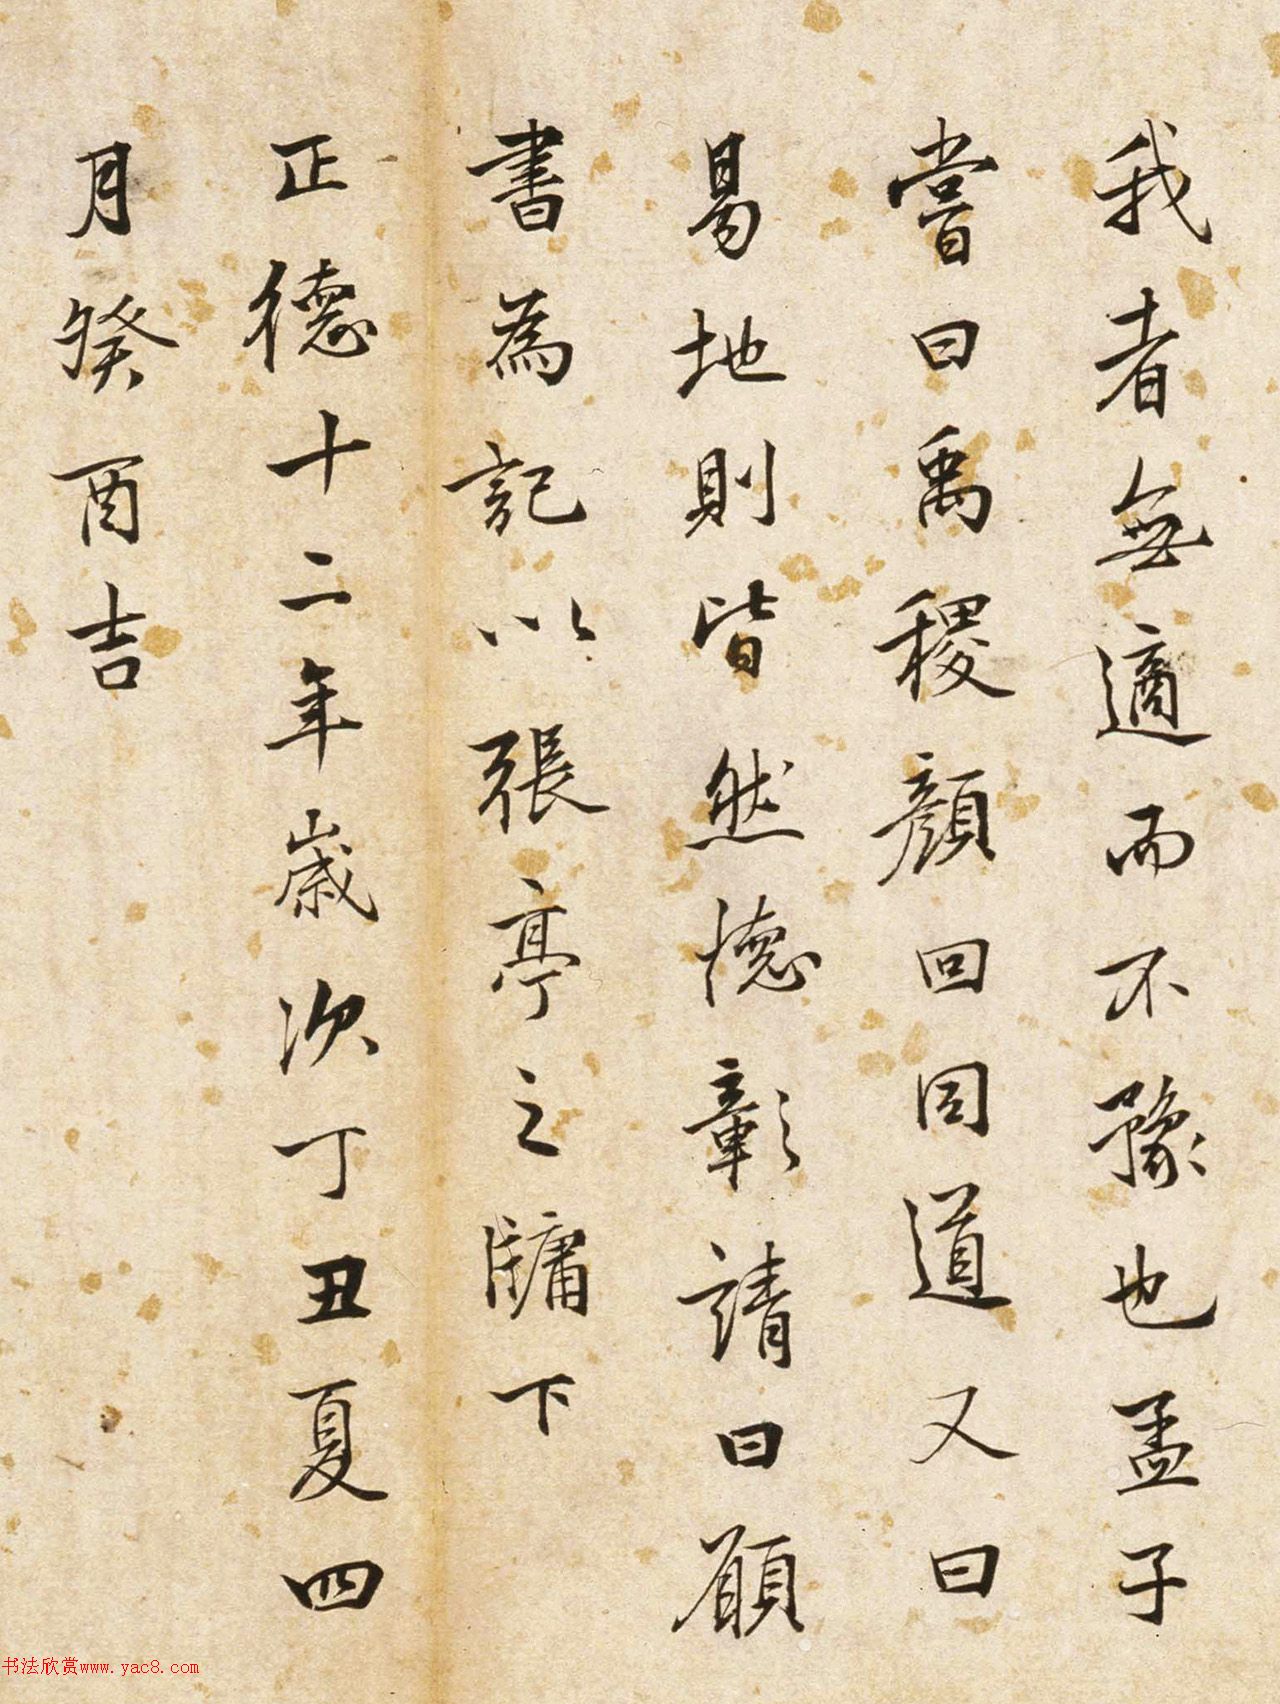 我者無適而不豫也孟子
嘗曰禹稷顏回同道又曰
易地則皆然德彰請曰願
書為記以張亭之牗下
正德十二年歲次丁丑夏四
月癸酉吉
书法欣赏www.yac8.com